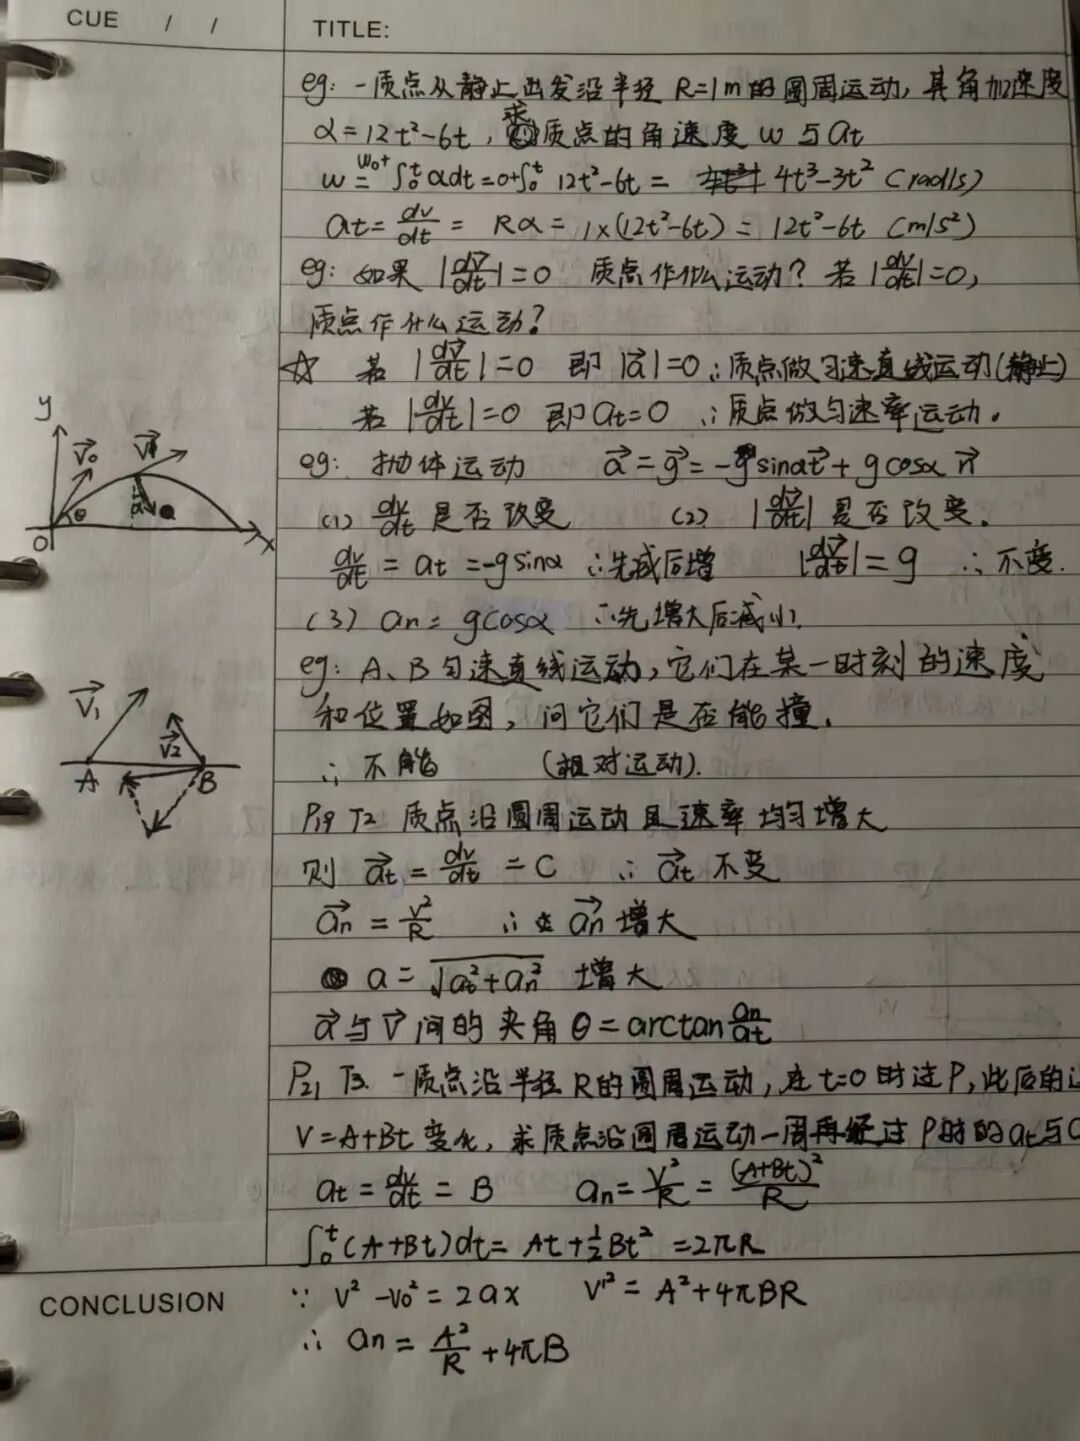 CUE / /
TITLE:
eg: 一质点从静止出发沿半径 R=1m 的圆周运动, 其角加速度
α=12t²-6t, 求质点的角速度 ω 与 at
ω = ω₀+∫₀ᵗαdt=0+∫₀ᵗ 12t²-6t = 4t³-3t² (rad/s)
at = dv/dt = Rα = 1×(12t²-6t) = 12t²-6t (m/s²)
eg: 如果 |dv⃗/dt|=0 质点作什么运动? 若 |dv/dt|=0,
质点作什么运动?
☆ 若 |dv⃗/dt|=0 即 |a⃗|=0 ∴质点做匀速直线运动(静止)
若 |dv/dt|=0 即 at=0 ∴质点做匀速率运动.
y
v⃗₀
v⃗
θ
a⃗
O
x
eg: 抛体运动 a⃗=g⃗=-gsinαt⃗+gcosα n⃗
(1) dv/dt 是否改变 (2) |dv⃗/dt| 是否改变.
dv/dt = at =-gsinα ∴先减后增 |dv⃗/dt|=g ∴不变.
(3) an = gcosα ∴先增大后减小.
eg: A、B匀速直线运动, 它们在某一时刻的速度
和位置如图, 问它们是否能撞.
V⃗₁
V⃗₂
A
B
∴ 不能 (相对运动).
P19 T2 质点沿圆周运动且速率均匀增大
则 a⃗t = dv/dt = C ∴ a⃗t 不变
a⃗n = v²/R ∴ a⃗n 增大
a = √(at²+an²) 增大
a⃗与v⃗间的夹角θ=arctan an/at
P21 T3. 一质点沿半径R的圆周运动, 在t=0时过P, 此后的
V=A+Bt 变化, 求质点沿圆周运动一周再经过P时的at与
at = dv/dt = B an = V²/R = (A+Bt)²/R
∫₀ᵗ(A+Bt)dt = At+½Bt² =2πR
CONCLUSION
∵ V²-V₀²=2ax V'²=A²+4πBR
∴ an = A²/R +4πB